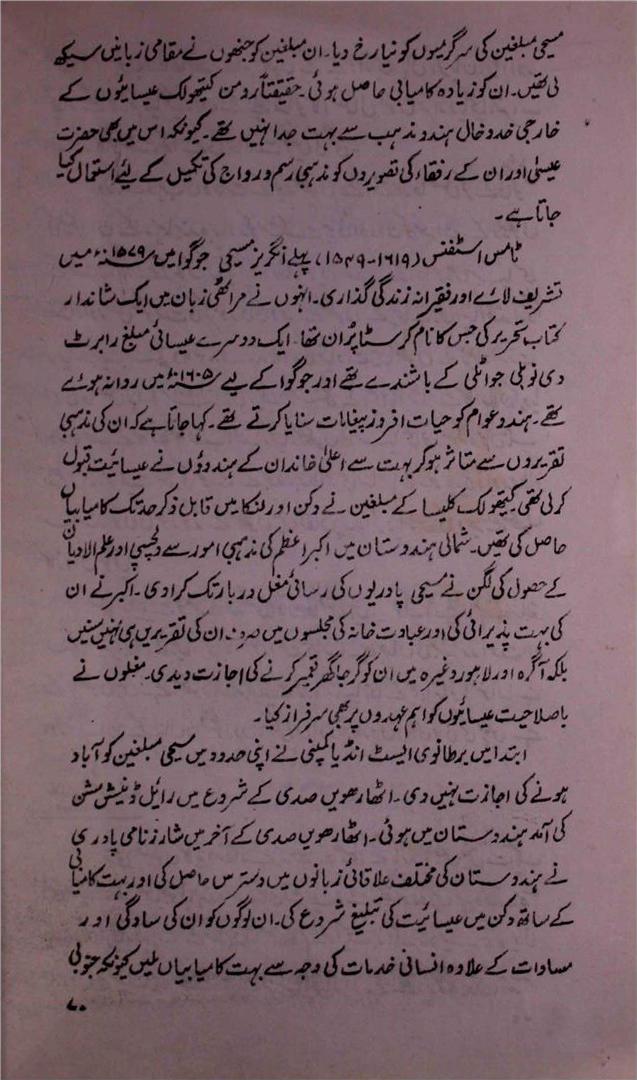 مسیحی مبلغین کی سرگرمیوں کو نیا رخ دیا۔ ان مبلغین کو جنھوں نے مقامی زبانیں سیکھ
لی تھیں۔ ان کو زیادہ کامیابی حاصل ہوئی۔ حقیقتاً رومن کیتھولک عیسائیوں کے
خارجی خدوخال ہندو مذہب سے بہت جدا نہیں تھے۔ کیونکہ اس میں بھی حضرت
عیسیٰ اور ان کے رفقاء کی تصویروں کو مذہبی رسم و رواج کی تکمیل کے لیئے استعمال کیا
جاتا ہے۔
ٹامس اسٹفنس (۱۶۱۹-۱۵۴۹) پہلے انگریز مسیحی جو گوا میں ۱۵۷۹ء میں
تشریف لائے اور فقیرانہ زندگی گذاری۔ انہوں نے مراٹھی زبان میں ایک شاندار
کتاب تحریر کی جس کا نام کرسٹا پُران تھا۔ ایک دوسرے عیسائی مبلغ رابرٹ
دی نوبلی جو اٹلی کے باشندے تھے اور جو گوا کے لیے ۱۶۰۵ء میں روانہ ہوئے
تھے۔ ہندو عوام کو حیات افروز پیغامات سنایا کرتے تھے۔ کہا جاتا ہے کہ ان کی مذہبی
تقریروں سے متاثر ہوکر بہت سے اعلیٰ خاندان کے ہندوؤں نے عیسائیت قبول
کرلی تھی۔ کیتھولک کلیسا کے مبلغین نے دکن اور لنکا میں قابل ذکر حد تک کامیابیاں
حاصل کی تھیں۔ شمالی ہندوستان میں اکبر اعظم کی مذہبی امور سے دلچسپی اور علم الادیان
کے حصول کی لگن نے مسیحی پادریوں کی رسائی مغل دربار تک کرادی۔ اکبر نے ان
کی بہت پذیرائی کی اور عبادت خانہ کی مجلسوں میں صرف ان کی تقریریں ہی نہیں سنیں
بلکہ آگرہ اور لاہور وغیرہ میں ان کو گرجا گھر تعمیر کرنے کی اجازت دیدی۔ مغلوں نے
باصلاحیت عیسائیوں کو اہم عہدوں پر بھی سرفراز کیا۔
ابتدا میں برطانوی ایسٹ انڈیا کمپنی نے اپنی حدود میں مسیحی مبلغین کو آباد
ہونے کی اجازت نہیں دی۔ اٹھارھویں صدی کے شروع میں رائل ڈونیش مشن
کی آمد ہندوستان میں ہوئی۔ اٹھارھویں صدی کے آخر میں شارز نامی پادری
نے ہندوستان کی مختلف علاقائی زبانوں میں دسترس حاصل کی اور بہت کامیابی
کے ساتھ دکن میں عیسائیت کی تبلیغ شروع کی۔ ان لوگوں کو ان کی سادگی اور
مساوات کے علاوہ انسانی خدمات کی وجہ سے بہت کامیابیاں ملیں کیونکہ جنوبی
۷۰